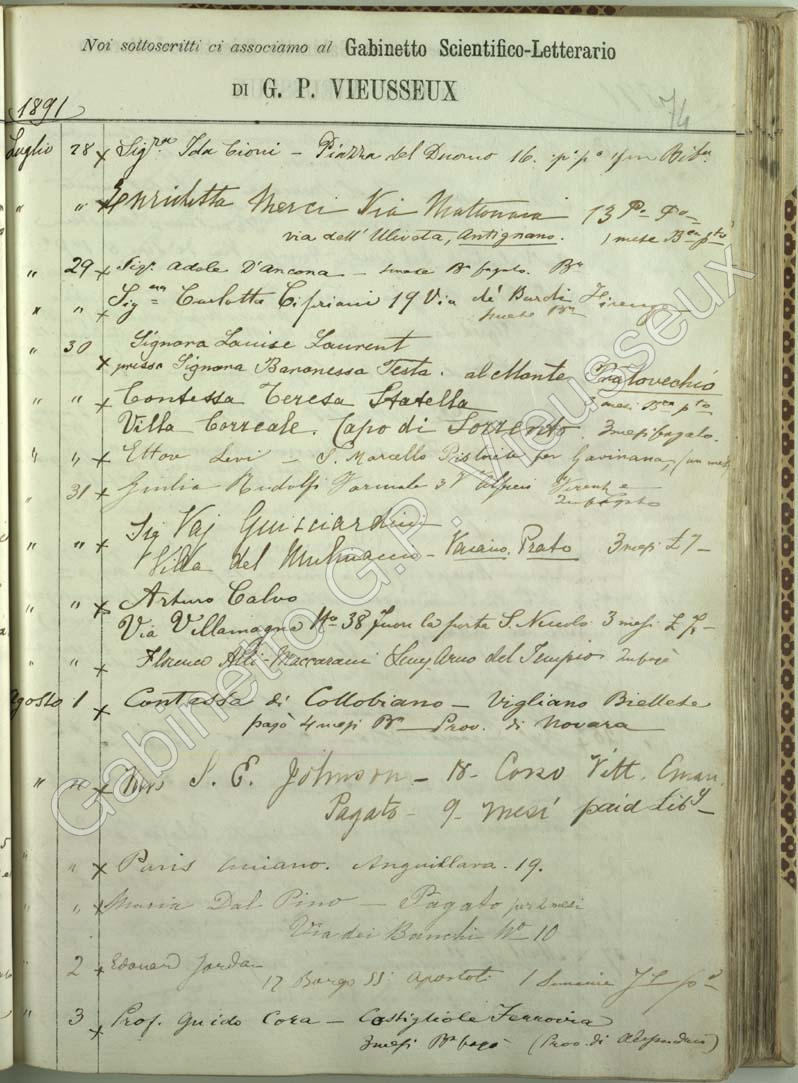 Noi sottoscritti ci associamo al Gabinetto Scientifico-Letterario
DI G. P. VIEUSSEUX
74
1891
Luglio 28 x Sig.ra Ida Cioni – Piazza del Duomo 16.
" x Enrichetta Merci Via Mattonaia 13 Po Po
via dell'Uliveta, Antignano. 1 mese
" 29 x Sig.a Adele D'Ancona – 1 mese Br pagato. Br
" " x Sig.na Carlotta Cipriani 19 Via de' Bardi Firenze
" 30 Signora Louise Laurent
x presso Signora Baronessa Testa. al Monte Pratovecchio
" " x Contessa Teresa Statella 3 mesi
Villa Correale. Capo di Sorrento. 3 mesi pagato.
" " x Ettore Levi – S. Marcello Pistoiese per Gavinana,
" 31 x Giulia Ridolfi Firenze
" " x Sig Vaj Guicciardini
Villa del Mulinaccio – Vaiano. Prato 3 mesi £ 7 –
" " x Arturo Calvo
Via Villamagna No 38 fuori la porta S. Niccolo 3 mesi £ 7 –
" " x Florence Alli-Maccarani Lung'Arno del Tempio
Agosto 1 x Contessa di Collobiano – Vigliano Biellese
pagò 4 mesi Br – Prov. di Novara
" " x Mrs S. E. Johnson – 18 – Corso Vitt. Eman.
Pagato – 9 – mesi paid
" " x Paris Luciano. Anguillara. 19.
" " x Maria Dal Pino – Pagato per 2 mesi
Via dei Banchi No 10
2 x Edouard Jordan
17 Borgo SS. Apostoli 1
" 3 x Prof. Guido Cora – Costigliole Ferrovia
3 mesi Br pagò (Prov. di Alessandria)
Gabinetto G.P. Vieusseux